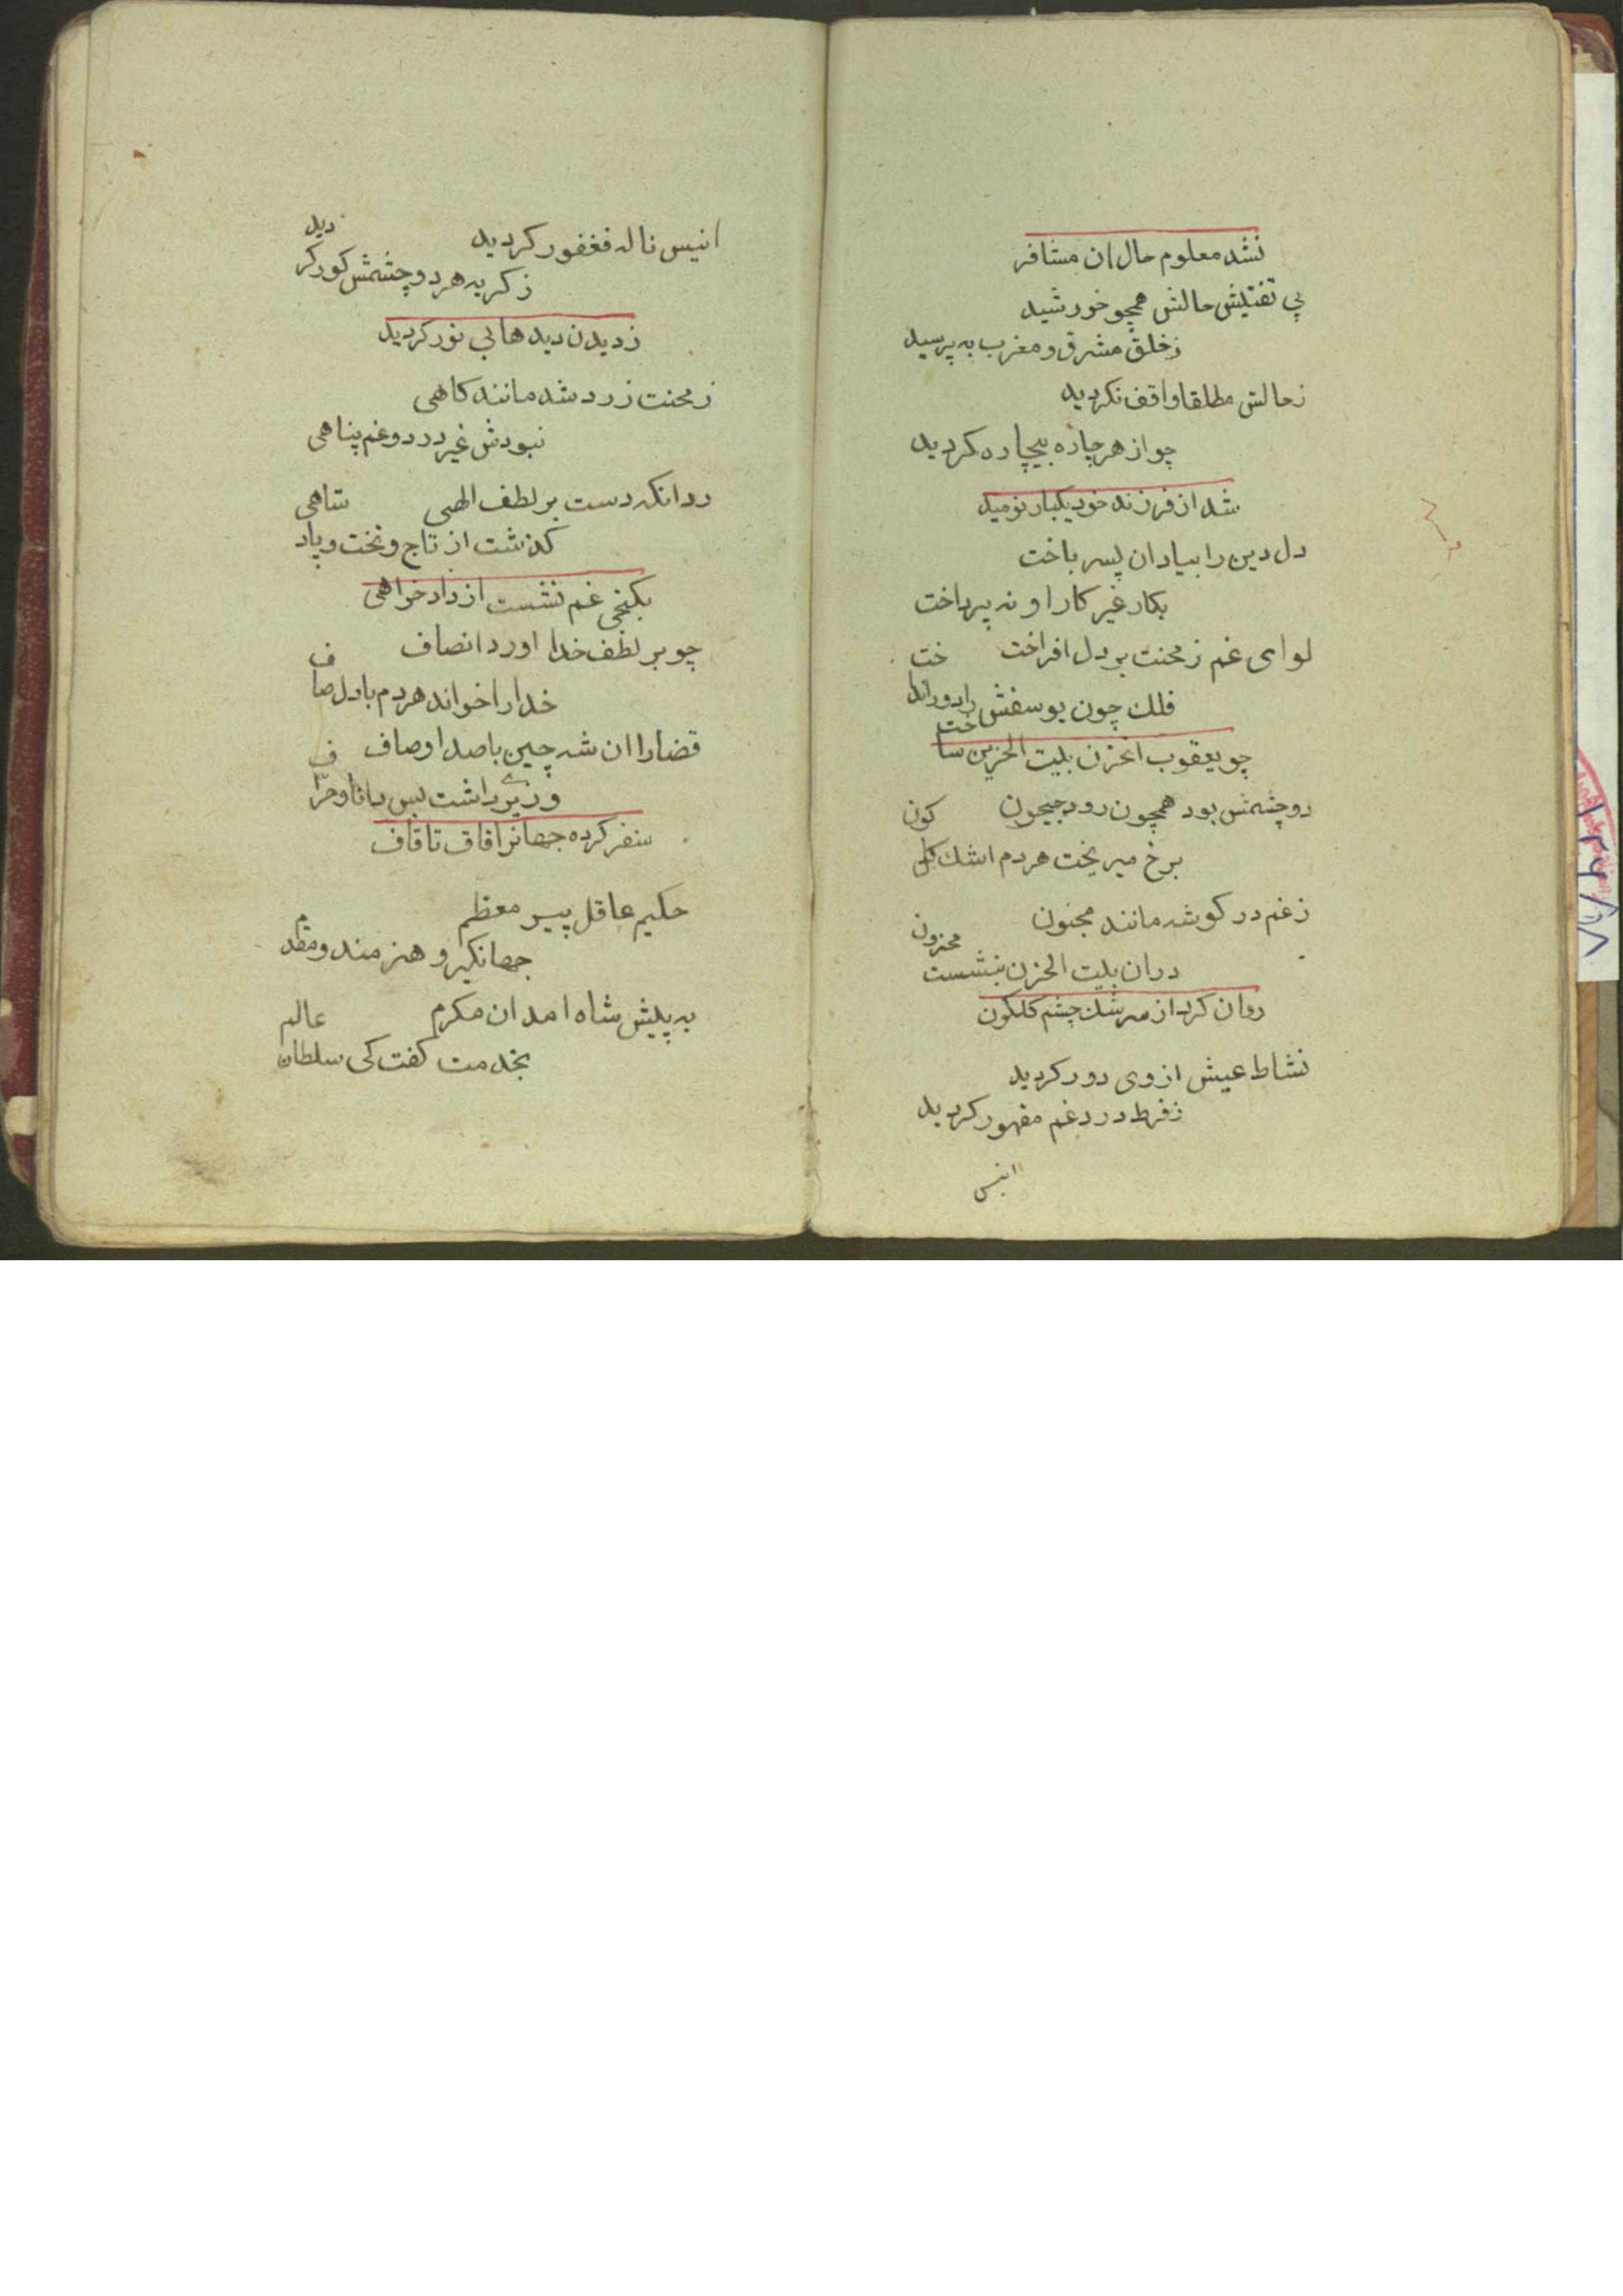 نشد معلوم حال ان مشافر
پی تفتیش حالش همچو خورشید
زخلق مشرق و مغرب به پرسید
زحالش مطلقا واقف نکردید
چو از هر چاره بیچاره کردید
شد از فرزند خود یکبار نومید
دل دین را بیاد ان پسر باخت
بکار غیر کار او نه پرداخت
لوای غم زمحنت بر دل افراخت
فلك چون یوسفش را دور انداخت
چو یعقوب انحزن بیت الحزین ساخت
دو چشمش بود همچون رود جیحون
برخ میریخت هر دم اشك کلکون
زغم در کوشه مانند مجنون
دران بیت الحزن بنشست محزون
روان کرد از سرشك چشم کلکون
نشاط عیش ازوی دور کردید
زفرط درد غم مقهور کردید
انیس
انیس ناله فغفور کردید
زکریه هر دو چشمش کور کردید
زدیدن دیدها بی نور کردید
زمحنت زرد شد مانند کاهی
نبودش غیر درد و غم پناهی
ردانکه دست بر لطف الهی
کذشت از تاج و تخت و پادشاهی
بکنجی غم نشست از داد خواهی
چو بر لطف خدا اورد انصاف
خدا را خواند هر دم با دل صاف
قضارا ان شه چین باصد اوصاف
وزیری داشت بس دانا و حراف
سفر کرده جهانرا قاف تا قاف
حکیم عاقل پیر معظم
جهانکیر و هنرمند و مقدم
به پیش شاه امد ان مکرم
بخدمت کفت کی سلطان عالم